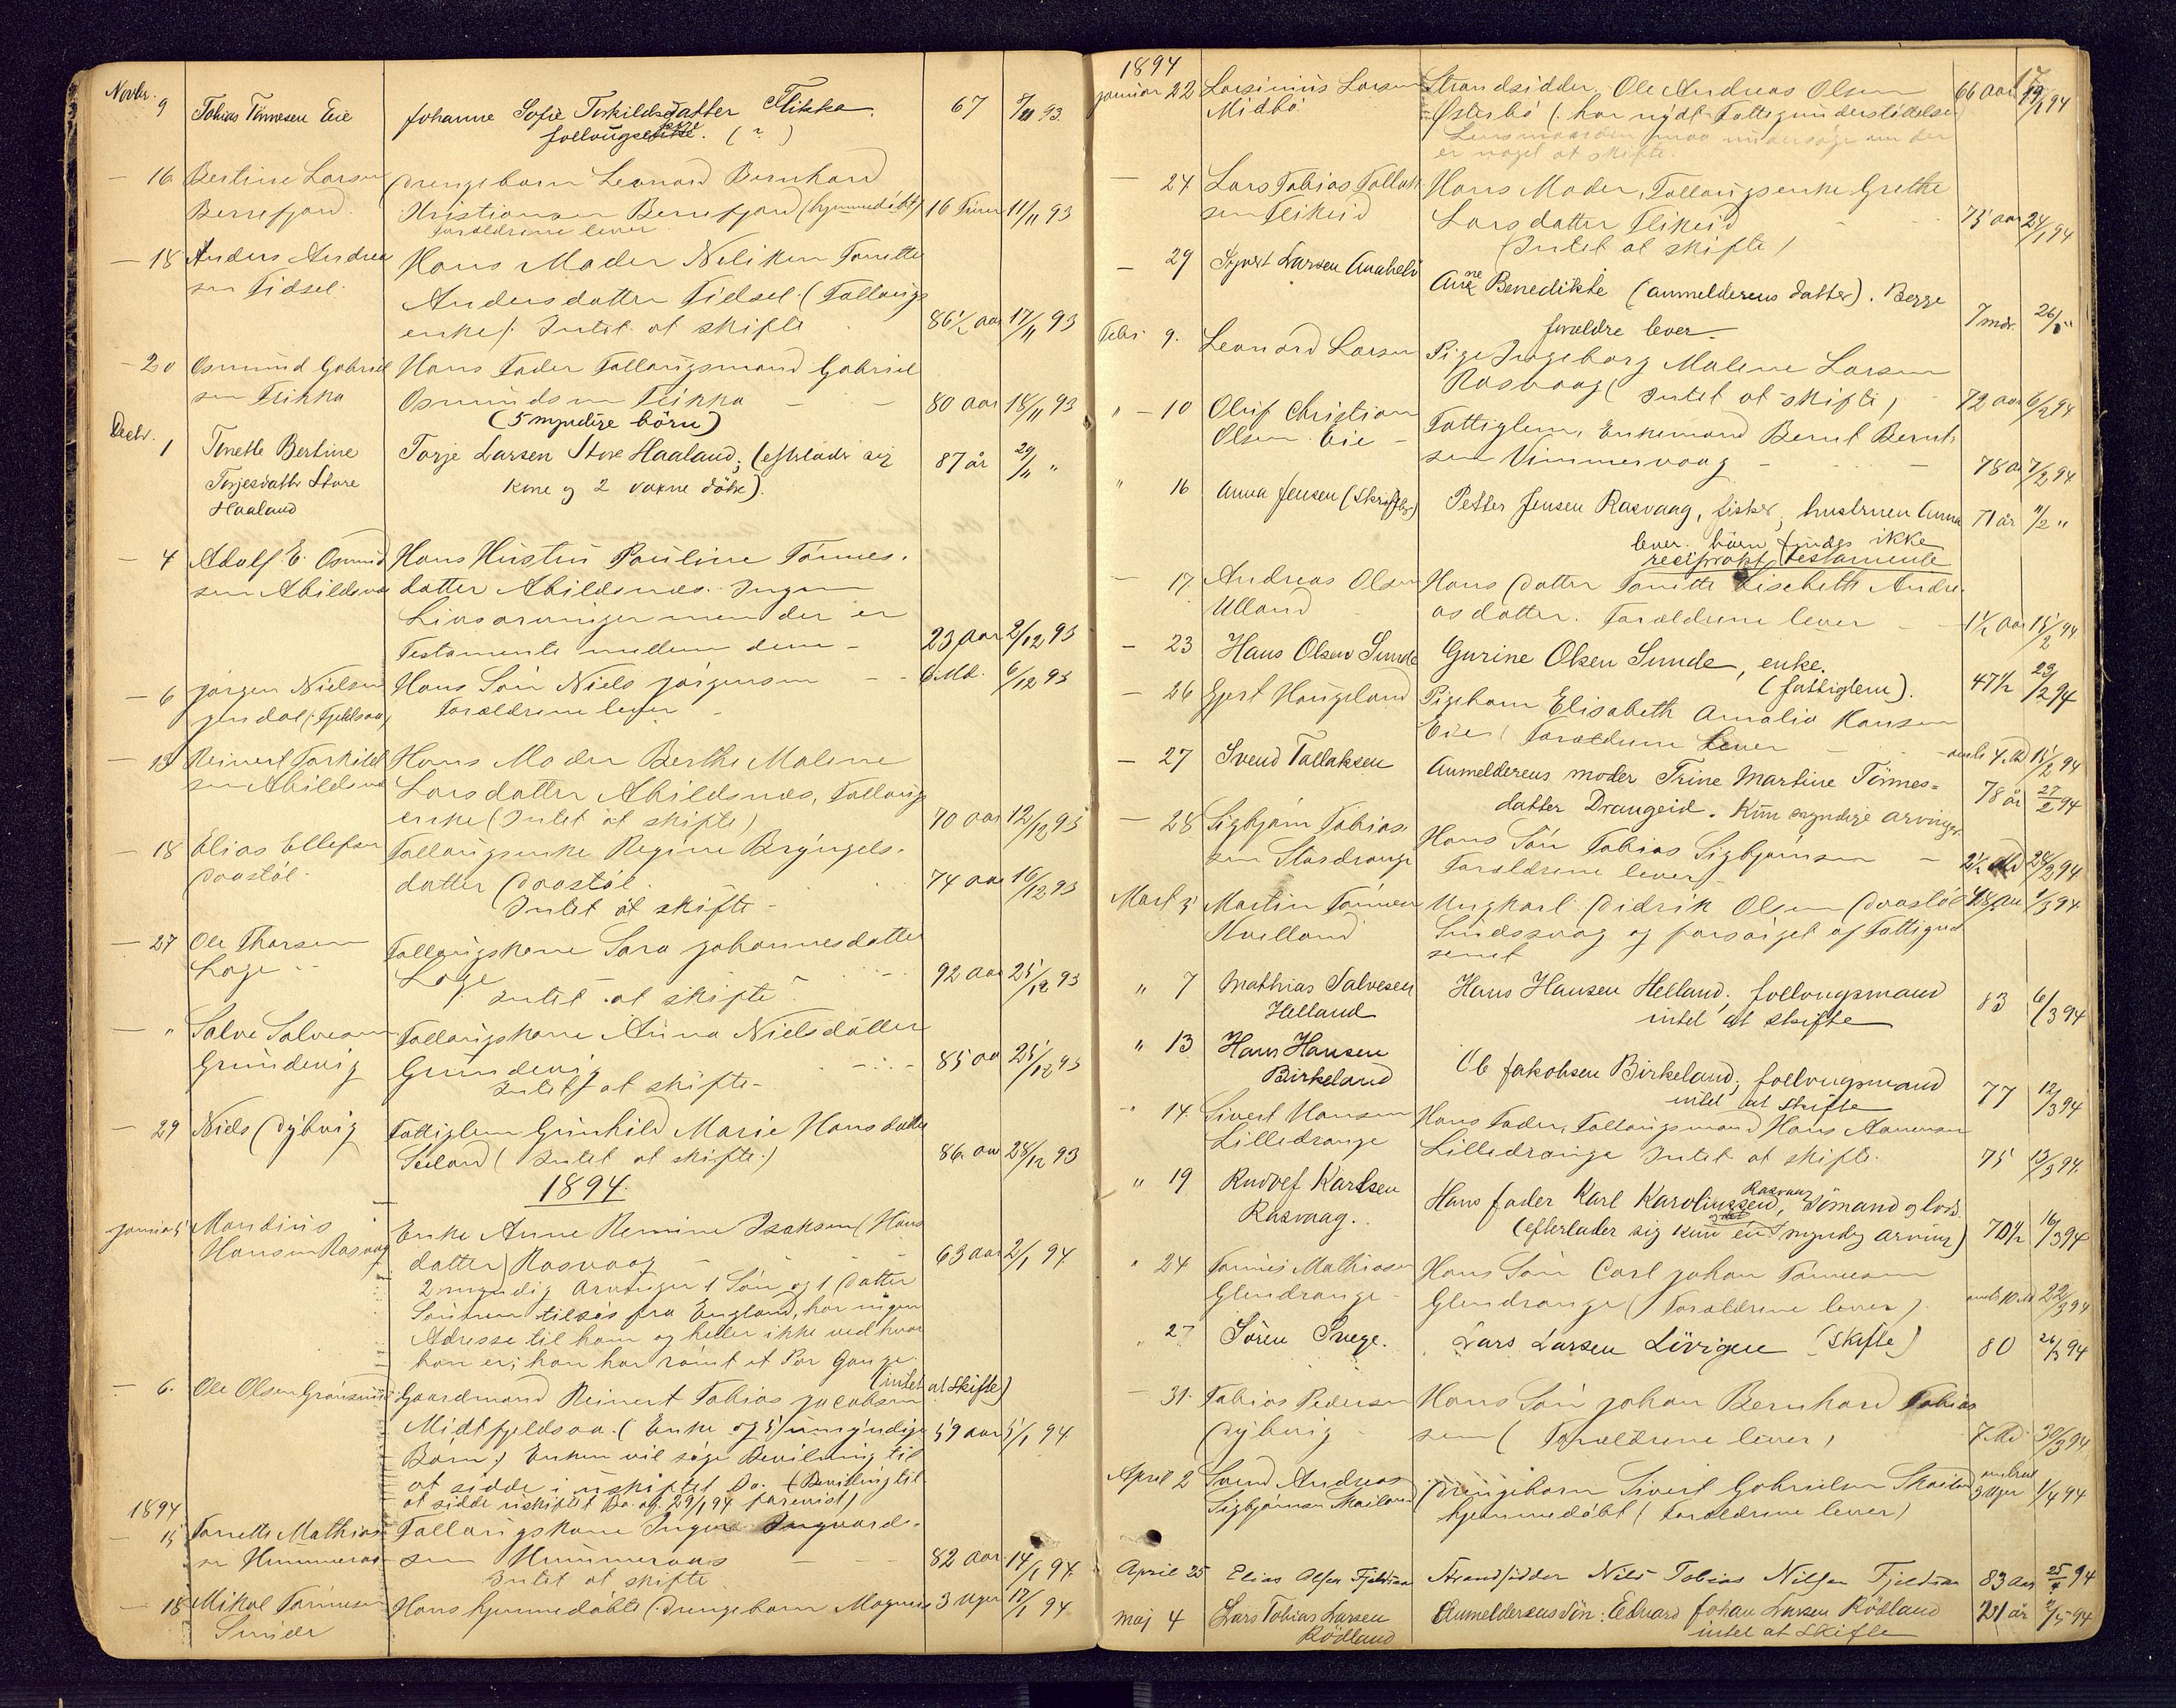 Novbr.
9 Tobias Tönnesen Eie Johanne Sofie Torkildsdatter Flikka. 67 7/11 93.
follougsenke. (?)
— 16 Bertine Larsen Drengebarn Leonard Bernhard
Berrefjord. Kristiansen Berrefjord (hjemmedöbt) 16 Timer 11/11 93
Forældrene lever
— 18 Anders Andrea Hans Moder Neliken Tonette
sen Fidsel. Andersdatter Fidsel. (Follougs
enke). Intet at skifte 86½ Aar 17/11 93
— 20 Osmund Gabriel Hans Fader Follougsmand Gabriel
sen Flikka Osmundsen Flikka — — 80 Aar 18/11 93
(5 myndige börn)
Decbr.
1 Tonette Bertine Torje Larsen Store Haaland; (efterlader sig 87 år 29/11 "
Torjesdatter Store kone og 2 voxne døtre).
Haaland
— 4 Adolf E. Osmund Hans Hustru Pauline Tönnes.
sen Abildsnes datter Abildsnæs. Ingen
Livsarvinger men der er
Testamente mellem dem — 23 Aar 2/12 93
— 6 Jörgen Nielsen Hans Sön Niels Jörgensen — 6 Md. 6/12 93
Jerdal (Fjeldsaa) Forældrene lever —
— 13 Reinert Torkild Hans Moder Berthe Malene
sen Abildsnes Larsdatter Abildsnæs, Follougs
enke (Intet at skifte) 70 Aar 12/12 93
— 18 Elias Ellefsen Follougsenke Regine Bryngels.
Daastöl. datter Daastöl. 74 Aar 16/12 93
Intet at skifte —
— 27 Ole Thorsen Follougskone Sara Johannesdatter
Loge — Loge 92 Aar 25/12 93
Intet at skifte
— " Salve Salvesen Follougskone Anna Nielsdatter
Grundevig Grundevig 85 Aar 25/12 93
Intet at skifte —
— 29 Niels Dybvig Fattiglem Gunhild Marie Hansdatter
Seeland (Intet at skifte.) 86 Aar 28/12 93
1894.
Januar 5 Mandius Enke Anne Remine Isaksen (Hans
Hansen Rasvaag datter) Rasvaag — 63 Aar 2/1 94
2 myndig Arvinger 1 Sön og 1 Datter
Sönnen tilsös fra England, har ingen
Adresse til ham og heller ikke ved hvor
han er; han har römt et Par Gange.
(intet at skifte)
— 6. Ole Olsen Grönsund Gaardmand Reinert Tobias Jacobsen
Midtfjeldsaa. (Enke og 5 umyndige 59 Aar 5/1 94
Börn) Enken vil söge Bevilling til
at sidde i uskiftet Bo. (Bevilling til
at sidde uskiftet Bo. af 29/1 94 forevist)
1894
— 15 Tonette Mathias Follougskone Inger Ingvards.
sen Hummeraas sen Hummeraas — 82 Aar 14/1 94
Intet at skifte
— 18 Mikal Tönnesen Hans hjemmedöbte Drengebarn Magnus 3 Uger 17/1 94
Sunde
1894
Januar 22 Larsinius Larsen Strandsidder Ole Andreas Olsen 66 Aar 19/1 94
Midbö. Österbö (har nydt Fattigunderstöttelse)
Lensmanden maa undersöge om der
er noget at skifte.
— 24 Lars Tobias Tollak Hans Moder, Follougsenke Grethe
sen Flikeid Larsdatter Flikeid — 75 Aar 24/1 94
(Intet at skifte)
— 29 Syvert Larsen Anabelö Ane Benedikte (anmelderens datter). Begge
forældre lever — 7 mdr. 26/1 "
Febr 9. Leonard Larsen Pige Ingeborg Malene Larsen
Rasvaag (Intet at skifte) 72 Aar 6/2 94
" — 10 Oluf Christian Fattiglem, Enkemand Bernt Bernt.
Olsen Eie — sen Vimmervaag — 78 Aar 7/2 94
" 16 Anna Jensen Petter Jensen Rasvaag, fisker; hustruen Anna 71 år 11/2 "
lever. börn findes ikke
reciprokt testamente
— 17 Andreas Olsen Hans Datter Tonette Lisebeth Andre.
Ulland asdatter. Forældrene lever — 1½ Aar 15/2 94
— 23 Hans Olsen Sunde Gurine Olsen Sunde, enke.
(fattiglem). 47½ 23/2 94
— 26 Gjert Haugeland Pigebarn Elisabeth Amalia Hansen
Eie (Forældrene lever — omtr 4. Md 15/2 94
— 27 Svend Tallaksen Anmelderens moder Trine Martine Tönnes=
datter Drangeid. Kun myndige arvinger. 78 år 27/2 94
— 28 Sigbjörn Tobias. Hans Sön Tobias Sigbjörnsen
sen Stordrange Forældrene lever — 2½ Md 28/2 94
Mart 5 Martin Tönnesen Ungkarl Didrik Olsen Daastöl 48 Aar 1/3 94
Kvelland Sindssvag og forsörget af Fattigvæ
senet
" 7 Mathias Salvesen Hans Hansen Helland; follougsmand 83 6/3 94
Helland intet at skifte
" 13 Hans Hansen Ole Jakobsen Birkeland; follougsmand 77 12/3 94
Birkeland intet at skifte
" 14. Sivert Hansen Hans Fader, Follougsmand Hans Aanensen
Lilledrange Lilledrange Intet at skifte. 75 13/3 94.
" 19 Rudolf Karlsen Hans fader Karl Karoliussen, Rasvaag Sömand og lods
Rasvaag. (efterlader sig kun én myndig arving) 70½ 16/3 94
" 24 Tönnes Mathiasen Hans Sön Carl Johan Tönnesen
Glendrange — Glendrange (Forældrene lever) omtr 10 Md 22/3 94
" 27 Sören Svege. Lars Larsen Lövigen (skifte) 80 26/3 94
— 31. Tobias Pedersen Hans Sön Johan Bernhard Tobias
Dybvig — sen (Forældrene lever) 7. Md. 30/3 94
April 2 Svend Andreas Drengebarn Sivert Gabrielsen Skailand omtrent 3 Uger 1/4 94
Sigbjörnsen Skailand hjemmedöbt (Forældrene lever)
April 25 Elias Olsen Fjeldsaa Strandsidder Nils Tobias Nilsen Fjeldsaa 83 Aar 25/4 94
Maj 4 Lars Tobias Larsen Anmelderens Sön: Edvard Johan Larsen Rödland 21 år 2/5 94
Rödland intet at skifte